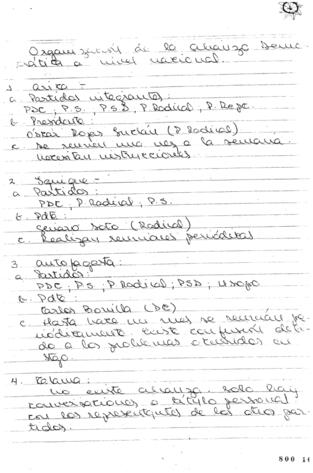 Organización de la alianza Demo-
crática a nivel nacional.
1. Arica -
a. Partidos integrantes:
PDC, P.S., P.S.D, P. Radical, P. Repc.
b. Presidente:
Oscar Rojas (P. Radical)
c. Se reunen una vez a la semana.
necesitan instrucciones
2. Iquique -
a. Partidos:
PDC, P. Radical, P.S.
b. Pdte:
Genaro Soto (Radical)
c. Realizan reuniones periódicas
3. Antofagasta:
a. Partidos:
PDC, P.S, P. Radical, PSD, Usopo
b. Pdte:
Carlos Bonilla (DC)
c. Hasta hace un mes se reunían pe-
riódicamente. Existe confusión debi-
do a los problemas ocurridos en
Stgo.
4. Calama:
No existe alianza. Solo hay
conversaciones a título personal
con los representantes de los otros par-
tidos.